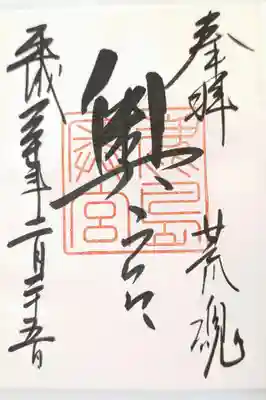 奉拝 荒魂
奥宮
平成三十年十二月二十五日